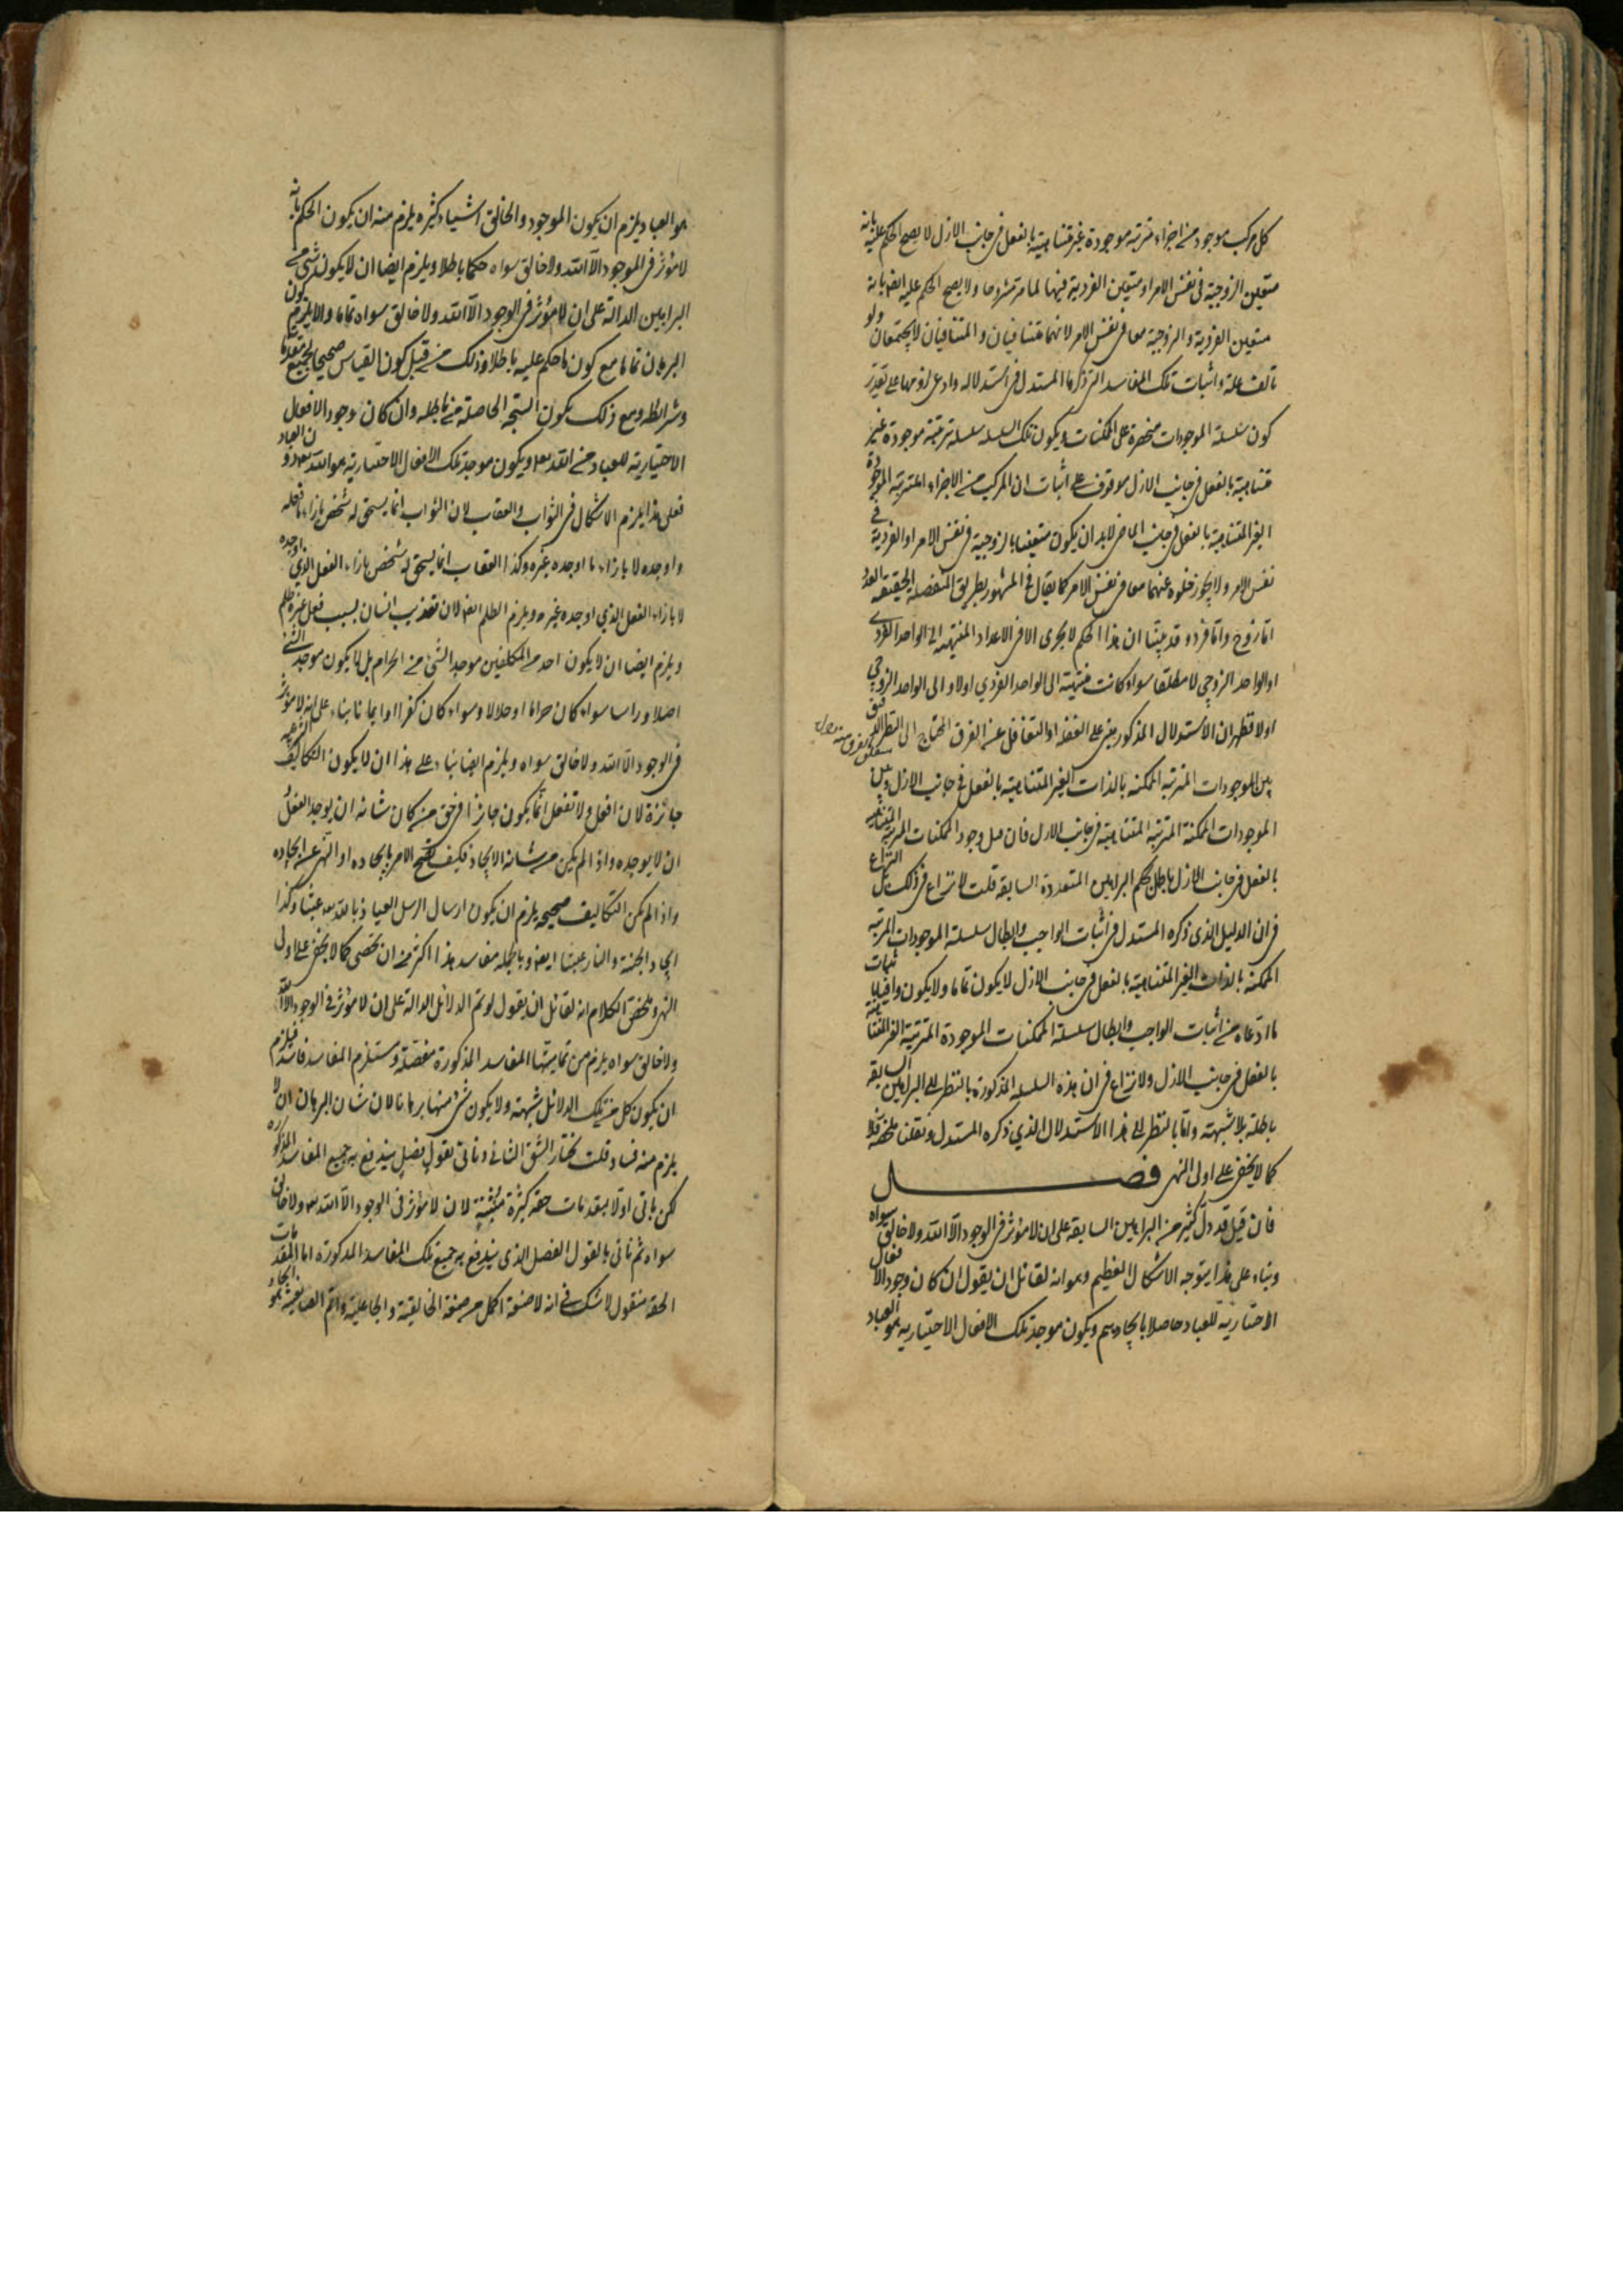 كل مركب موجود من اجزاء مترتبه موجودة غير متناهية بالفعل فى جانب الازل لا يصح الحكم عليه بانه
متعين الزوجية فى نفس الامر او متعين الفردية فيها لما مر مشروحا ولا يصح الحكم عليه ايضا بانه
متعين الفردية والزوجية معا فى نفس الامر لانهما متنافيان والمتنافيان لا يجتمعان
واثبات تلك المفاسد التى ذكرها المستدل فى استدلاله وادعى لزومها على تقدير
كون سلسلة الموجودات منحصرة على الممكنات ويكون تلك السلسله سلسله مترتبة موجودة غير
متناهية بالفعل فى جانب الازل موقوف على اثبات ان المركب من الاجزاء المترتبه الموجودة
الغير المتناهية بالفعل فى جانب الماضى لابد ان يكون متعينا بالزوجية فى نفس الامر او الفردية فى
نفس الامر ولا يجوز خلوه عنهما معا فى نفس الامر كما يقال فى المشهور بطريق المنفصله الحقيقيه العدد
اما زوج واما فرد وقد بينا ان هذا الحكم لا يجرى الا فى الاعداد المنتهيه الى الواحد الفردى
او الواحد الزوجى لا مطلقا سواء كانت منتهية الى الواحد الفردى اولا والى الواحد الزوجى
اولا فظهر ان الاستدلال المذكور مبنى على الغفله او التغافل عن الفرق المحتاج الى النظر الدقيق
بين الموجودات المترتبه الممكنه بالذات الغير المتناهية بالفعل فى جانب الازل وبين
الموجودات الممكنة المترتبه المتناهية فى جانب الازل فان قيل وجود الممكنات المترتبه الغير المتناهيه
بالفعل فى جانب الازل باطل بحكم البراهين المتعددة السابقه قلت لا نزاع فى ذلك بل النزاع
فى ان الدليل الذى ذكره المستدل فى اثبات الواجب وابطال سلسلة الموجودات المترتبه
الممكنه بالذات الغير المتناهية بالفعل فى جانب الازل لا يكون تماما ولا يكون وافيا باثبات
ما ادعاه من اثبات الواجب وابطال سلسلة الممكنات الموجودة المترتبة الغير المتناهية
بالفعل فى جانب الازل ولا نزاع فى ان هذه السلسله المذكورة بالنظر الى البراهين السابقه
باطلة بلا شبهته واما بالنظر الى هذا الاستدلال الذى ذكره المستدل ونقلنا ملخصه فلا
كما لا يخفى على اولى النهى فصل
فان قيل قد دل كثير من البراهين السابقة على ان لا مؤثر فى الوجود الا الله ولا خالق سواه
وبناء على هذا يتوجه الاشكال العظيم وهو انه لقائل ان يقول ان كان وجود الافعال
الاختارية للعباد حاصلا بايجادهم ويكون موجد تلك الافعال الاختياريه هو العباد
هو العباد يلزم ان يكون الموجود والخالق اشياء كثيره يلزم منه ان يكون الحكم بانه
لا مؤثر فى الموجود الا الله ولا خالق سواه حكما باطلا ويلزم ايضا ان لا يكون شئ من
البراهين الدالة على ان لا مؤثر فى الوجود الا الله ولا خالق سواه تماما والا يلزم كون
البرهان تماما مع كون ما حكم عليه باطلا وذلك من قبيل كون القياس صحيحا بجميع مقدماته
وشرايطه ومع ذلك يكون النتيجه الحاصلة منه باطله وان كان وجود الافعال
الاختيارية للعباد من الله تعالى ويكون موجد تلك الافعال الاختيارية هو الله تعالى دون العباد
فعلى هذا يلزم الاشكال فى الثواب والعقاب لان الثواب انما يستحق له شخص بازاء ما فعله
واوجده لا بازاء ما اوجده غيره وكذا العقاب انما يستحق له شخص بازاء الفعل الذى اوجده
لا بازاء الفعل الذى اوجده غيره ويلزم الظلم ايضا لان تعذيب انسان بسبب فعل غيره ظلم
ويلزم ايضا ان لا يكون احد من المكلفين موجد الشئ من الحرام بل لا يكون موجد الشئ
اصلا وراسا سواء كان حراما او حلالا وسواء كان كفرا او ايمانا بناء على انه لا مؤثر
فى الوجود الا الله ولا خالق سواه ويلزم ايضا بناء على هذا ان لا يكون التكاليف الشرعيه
جائزة لان افعل ولا تفعل انما يكون جائزا فى حق من كان شانه ان يوجد الفعل او
ان لا يوجده واذا لم يكن من شانه الايجاد فكيف يصح الامر بايجاده او النهى عن ايجاده
واذا لم يكن التكاليف صحيحه يلزم ان يكون ارسال الرسل العياذ بالله تعالى عبثا وكذا
ايجاد الجنة والنار عبثا ايضا وبالجمله مفاسد هذا اكثر من ان يحصى كما لا يخفى على اولى
النهى وملخص الكلام انه لقائل ان يقول لو تم الدلائل الدالة على ان لا مؤثر فى الوجود الا الله
ولا خالق سواه يلزم من تماميتها المفاسد المذكورة مفصلة ومستلزم المفاسد فاسد فيلزم
ان يكون كل من تلك الدلائل شبهته ولا يكون شئ منها برهانا لان شان البرهان ان لا
يلزم منه فساد قلت نختار الشق الثانى وناتى بقول فصل يندفع به جميع المفاسد المذكوره
لكن ناتى اولا بمقدمات حقه كثيرة لان لا مؤثر فى الوجود الا الله تعالى ولا خالق
سواه ثم ناتى بالقول الفصل الذى يندفع به جميع تلك المفاسد المذكورة اما المقدمات
الحقه فنقول لا شك فى انه لا صفة اكمل من صفة الخالقية والجاعلية